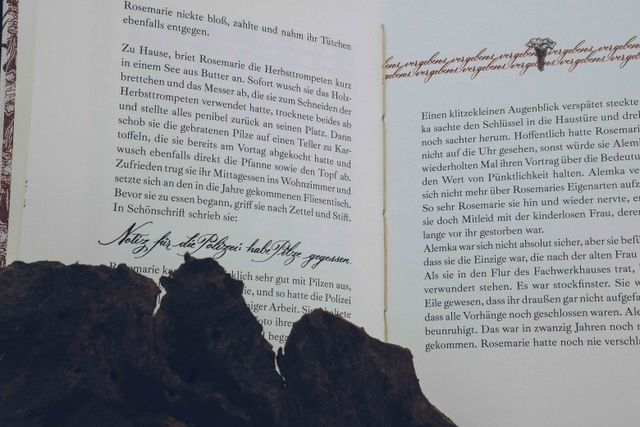 Rosemarie nickte bloß, zahlte und nahm ihr Tütchen
ebenfalls entgegen.
Zu Hause, briet Rosemarie die Herbsttrompeten kurz
in einem See aus Butter an. Sofort wusch sie das Holz-
brettchen und das Messer ab, die sie zum Schneiden der
Herbsttrompeten verwendet hatte, trocknete beides ab
und stellte alles penibel zurück an seinen Platz. Dann
schob sie die gebratenen Pilze auf einen Teller zu Kar-
toffeln, die sie bereits am Vortag abgekocht hatte und
wusch ebenfalls direkt die Pfanne sowie den Topf ab.
Zufrieden trug sie ihr Mittagessen ins Wohnzimmer und
setzte sich an den in die Jahre gekommenen Fliesentisch.
Bevor sie zu essen begann, griff sie nach Zettel und Stift.
In Schönschrift schrieb sie:
Notiz für die Polizei: habe Pilze gegessen.
Rosemarie klich sehr gut mit Pilzen aus,
die, und so hatte die Polizei
niger Arbeit. Sie
oto ihre
vergebens vergebens vergebens vergebens vergebens
vergebens vergebens vergebens vergebens vergebens
Einen klitzekleinen Augenblick verspätet steckte
ka sachte den Schlüssel in die Haustüre und
noch sachter herum. Hoffentlich hatte Rosemar
nicht auf die Uhr gesehen, sonst würde sie Alem
wiederholten Mal ihren Vortrag über die Bedeutu
den Wert von Pünktlichkeit halten. Alemka ve
sich nicht mehr über Rosemaries Eigenarten aufz
So sehr Rosemarie sie hin und wieder nervte, e
sie doch Mitleid mit der kinderlosen Frau, dere
lange vor ihr gestorben war.
Alemka war sich nicht absolut sicher, aber sie bef
dass sie die Einzige war, die nach der alten Frau
Als sie in den Flur des Fachwerkhauses trat,
verwundert stehen. Es war stockfinster. Sie w
Eile gewesen, dass ihr draußen gar nicht aufgefa
dass alle Vorhänge noch geschlossen waren. Ale
beunruhigt. Das war in zwanzig Jahren noch n
gekommen. Rosemarie hatte noch nie verschl